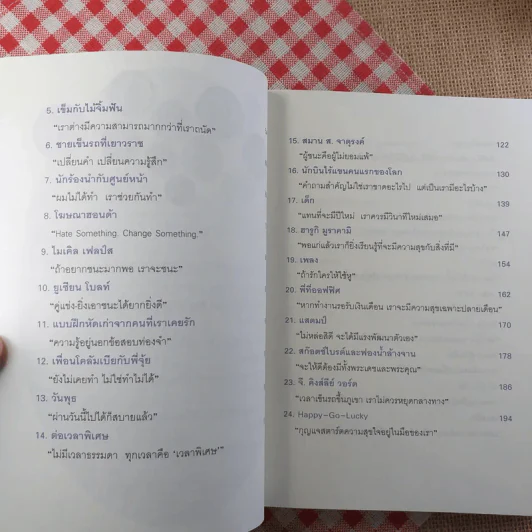 5. เข็มกับไม้จิ้มฟัน
"เราต่างมีความสามารถมากกว่าที่เราถนัด"
6. ชายเข็นรถที่เยาวราช
"เปลี่ยนคำ เปลี่ยนความรู้สึก"
7. นักร้องนำกับศูนย์หน้า
"ผมไม่ได้ทำ เราช่วยกันทำ"
8. โฆษณาฮอนด้า
"Hate Something. Change Something."
9. ไมเคิล เฟลป์ส
"ถ้าอยากชนะมากพอ เราจะชนะ"
10. ยูเซียน โบลท์
"คู่แข่ง-ยิ่งเอาชนะได้ยากยิ่งดี"
11. แบบฝึกหัดเก่าจากคนที่เราเคยรัก
"ความรู้อยู่นอกข้อสอบท่องจำ"
12. เพื่อนโคลัมเบียกับพี่จุ้ย
"ยังไม่เคยทำ ไม่ใช่ทำไม่ได้"
13. วันพุธ
"ผ่านวันนี้ไปได้ก็สบายแล้ว"
14. ต่อเวลาพิเศษ
"ไม่มีเวลาธรรมดา ทุกเวลาคือ 'เวลาพิเศษ'"
15. สมาน ส. จาตุรงค์ 122
"ผู้ชนะคือผู้ไม่ยอมแพ้"
16. นักบินไร้แขนคนแรกของโลก 130
"คำถามสำคัญไม่ใช่เราขาดอะไรไป แต่เป็นเรามีอะไรบ้าง"
17. เด็ก 139
"แทนที่จะมีปีใหม่ เราควรมีวินาทีใหม่เสมอ"
18. ฮารูกิ มูราคามิ 147
"พอแก่แล้วเราก็ยิ่งเรียนรู้ที่จะมีความสุขกับสิ่งที่มี"
19. เพลง 154
"ถ้ารักใครให้ใช้หู"
20. พี่ที่ออฟฟิศ 162
"หากทำงานรอรับเงินเดือน เราจะมีความสุขเฉพาะปลายเดือน"
21. แสตมป์ 170
"ไม่หล่อสิดี จะได้มีแรงพัฒนาตัวเอง"
22. สก๊อตช์ไบรต์และฟองน้ำล้างจาน 178
"จะให้ดีต้องมีทั้งพระเดชและพระคุณ"
23. จี. คิงส์ลีย์ วอร์ด 186
"เวลาเข็นรถขึ้นภูเขา เราไม่ควรหยุดกลางทาง"
24. Happy-Go-Lucky 194
"กุญแจสตาร์ตความสุขใจอยู่ในมือของเรา"